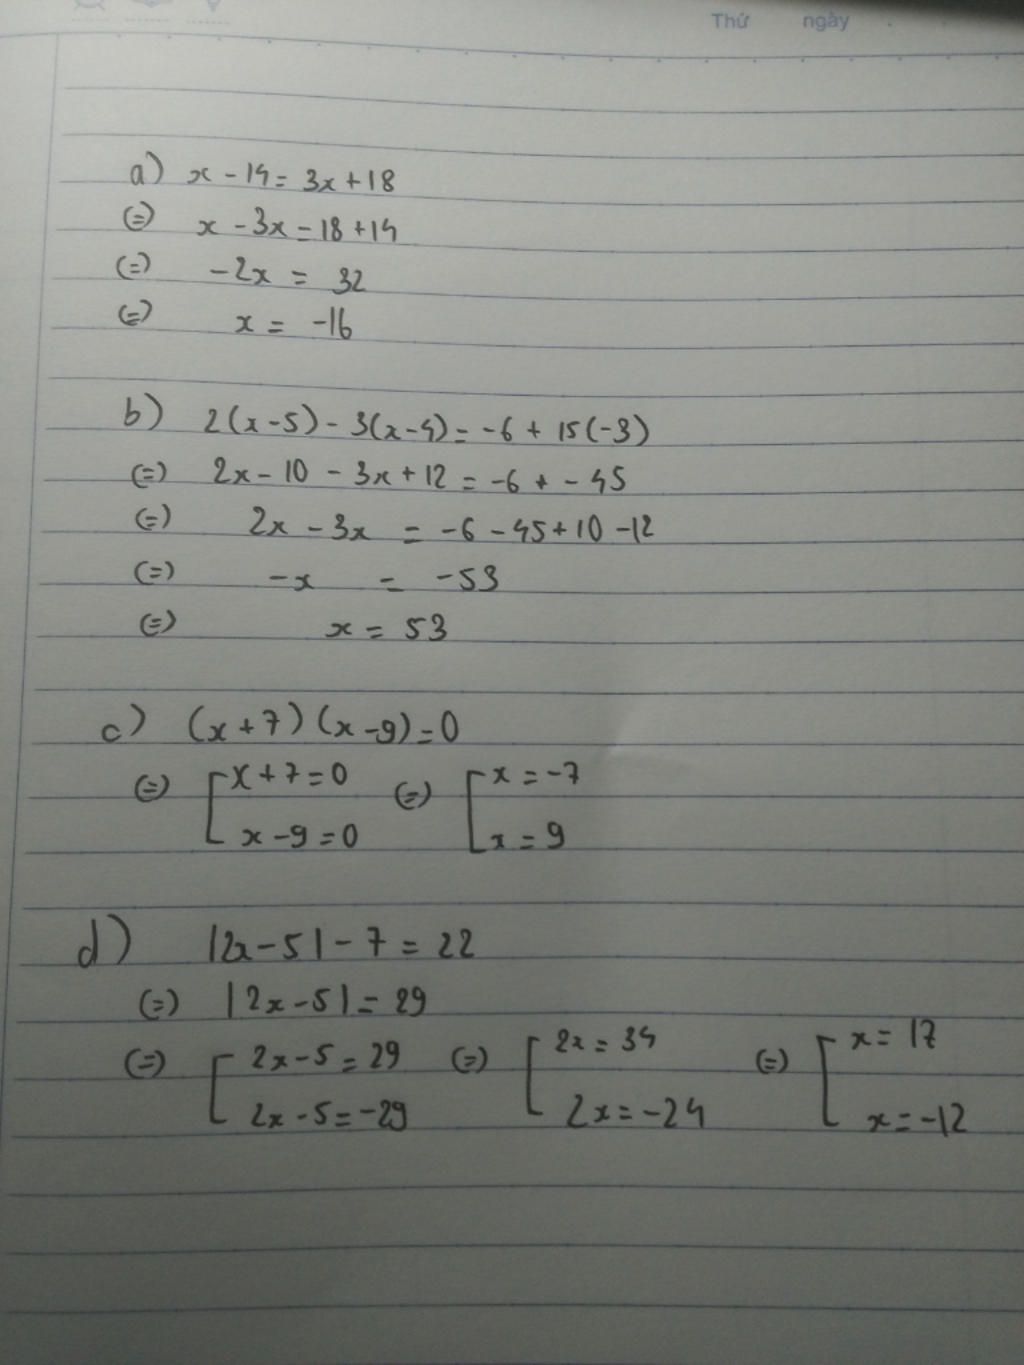 Thứ ngày
a) x - 14 = 3x + 18
(=) x - 3x = 18 + 14
(=) -2x = 32
(=) x = -16
b) 2(x-5) - 3(x-4) = -6 + 15(-3)
(=) 2x - 10 - 3x + 12 = -6 + - 45
(=) 2x - 3x = -6 - 45 + 10 - 12
(=) -x = -53
(=) x = 53
c) (x+7)(x-9) = 0
(=) [ x + 7 = 0 (=) [ x = -7
x - 9 = 0 x = 9
d) |2x - 5| - 7 = 22
(=) |2x - 5| = 29
(=) [ 2x - 5 = 29 (=) [ 2x = 34 (=) [ x = 17
2x - 5 = -29 2x = -24 x = -12